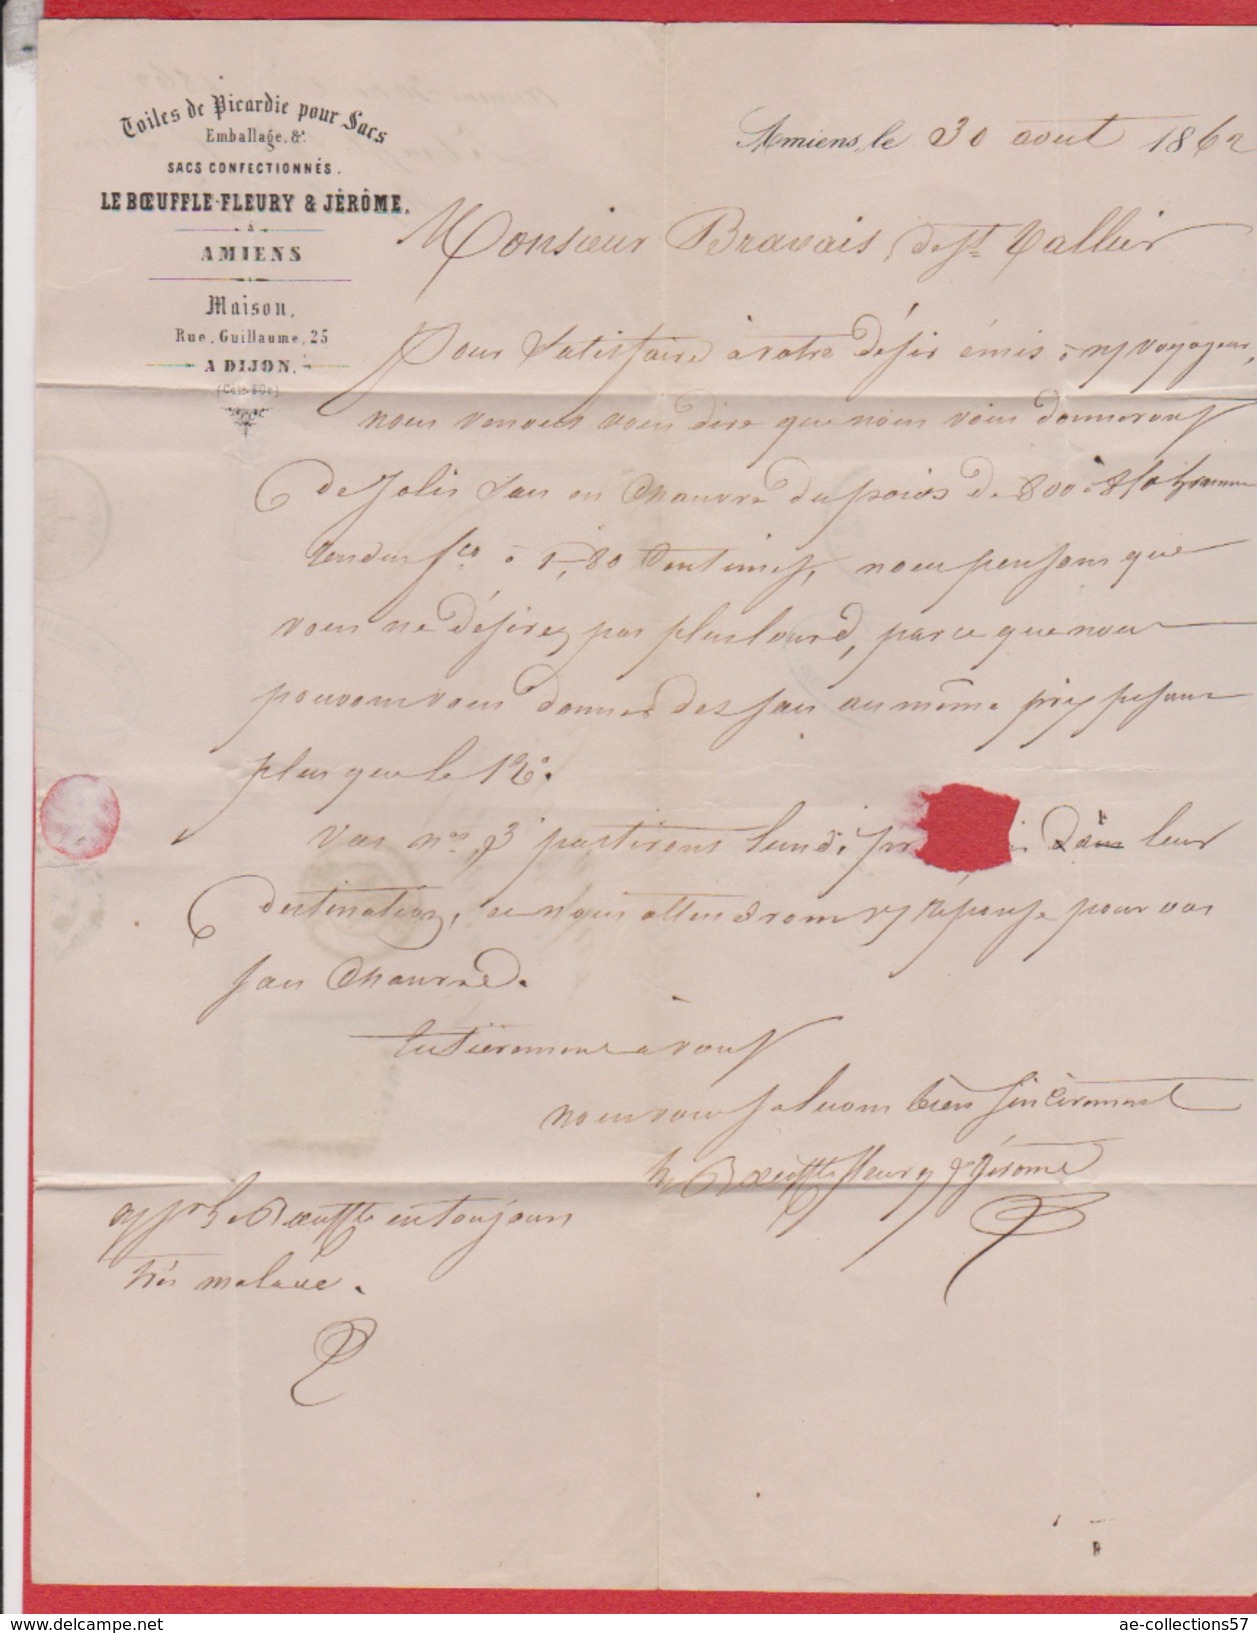 Toiles de Picardie pour Sacs
Emballage, &.
SACS CONFECTIONNÉS.
LE BŒUFFLE-FLEURY & JÉRÔME.
à
AMIENS
Maison,
Rue, Guillaume, 25
A DIJON,
(Côte d'Or)
Amiens, le 30 aout 1862
Monsieur Bravais de St Vallier
Pour Satisfaire à votre désir émis à voyageur,
nous venons vous dire que nous vous donnerons
de Jolis Sacs en Chanvre du poids de 800 à grammes
rendus fco à 1,80 Centimes, nous pensons que
vous ne désirez pas plus lourd, parce que nous
pouvons vous donner des sacs au même prix pesant
plus que le 12°.
Vos nos 3 partirons lundi leur
destination, et nous attendrons réponse pour vos
sacs Chanvre.
Entièrement a vous
nous vous saluons bien sincèrement
Le Bœuffle fleury & Jérome
Le Bœuffle est toujours
très malade.
ae-collections57